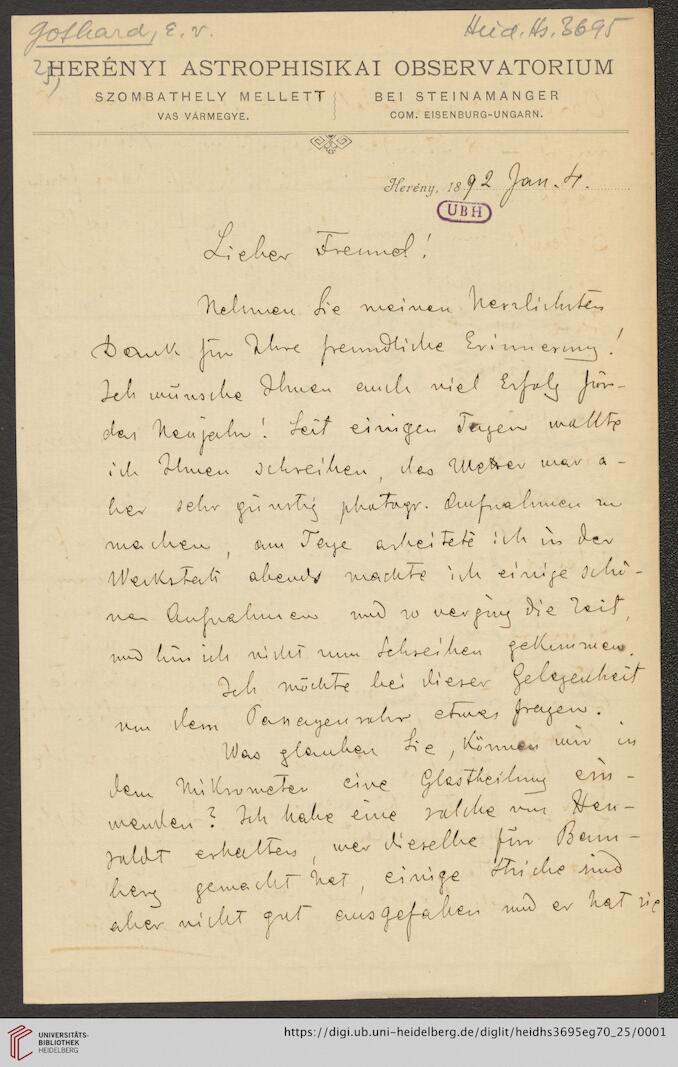 Gothard, E. v.
Heid. Hs. 3695
25)
HERÉNYI ASTROPHISIKAI OBSERVATORIUM
SZOMBATHELY MELLETT
BEI STEINAMANGER
VAS VÁRMEGYE.
COM. EISENBURG-UNGARN.
Herény, 1892 Jan. 4.
UBH
Lieber Freund!
Nehmen Sie meinen Herzlichsten
Dank für Ihre freundliche Erinnerung!
Ich wünsche Ihnen auch viel Erfolg für
das Neujahr! Seit einigen Tagen wollte
ich Ihnen schreiben, das Wetter war a-
ber sehr günstig photogr. Aufnahmen zu
machen, am Tage arbeitete ich in der
Werkstatt abends machte ich einige schö-
ne Aufnahmen und so verging die Zeit,
und bin ich nicht zum Schreiben gekommen.
Ich möchte bei dieser Gelegenheit
von dem etwas fragen.
Was glauben Sie, können wir in
dem Mikrometer eine Glastheilung ein-
wenden? Ich habe eine solche von Hen-
soldt erhalten, wer dieselbe für Bam-
berg gemacht hat, einige Striche sind
aber nicht gut ausgefallen und er hat sie
UNIVERSITÄTS-
BIBLIOTHEK
HEIDELBERG
https://digi.ub.uni-heidelberg.de/diglit/heidhs3695eg70_25/0001